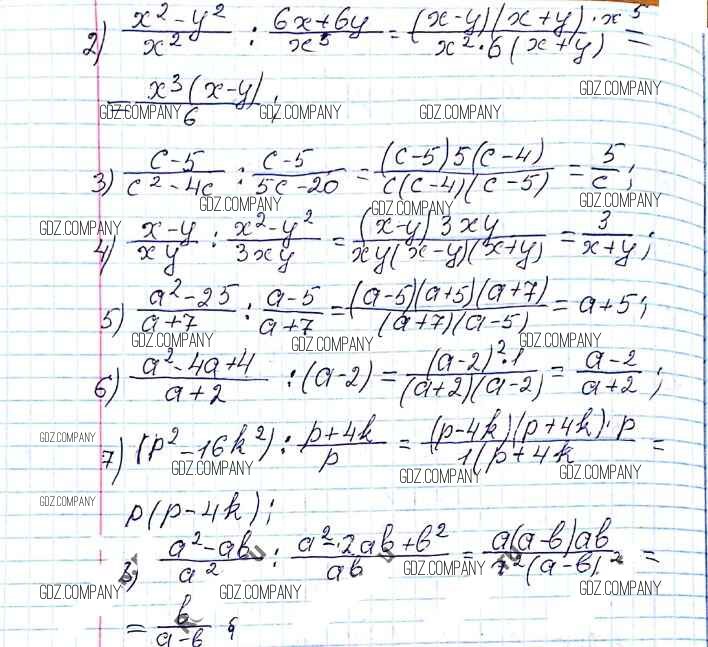 2) (x² - y²)/x² : (6x + 6y)/x⁵ = ((x-y)(x+y)·x⁵)/(x²·6(x+y)) =
GDZ.COMPANY
= (x³(x-y))/6 ;
GDZ.COMPANY GDZ.COMPANY GDZ.COMPANY
3) (c-5)/(c²-4c) : (c-5)/(5c-20) = ((c-5)5(c-4))/(c(c-4)(c-5)) = 5/c ;
GDZ.COMPANY GDZ.COMPANY GDZ.COMPANY
GDZ.COMPANY
4) (x-y)/(xy) : (x²-y²)/(3xy) = ((x-y)3xy)/(xy(x-y)(x+y)) = 3/(x+y) ;
GDZ.COMPANY GDZ.COMPANY
5) (a²-25)/(a+7) : (a-5)/(a+7) = ((a-5)(a+5)(a+7))/((a+7)(a-5)) = a+5 ;
GDZ.COMPANY GDZ.COMPANY GDZ.COMPANY
6) (a²-4a+4)/(a+2) : (a-2) = ((a-2)²·1)/((a+2)(a-2)) = (a-2)/(a+2) ;
GDZ.COMPANY
7) (p²-16k²) : (p+4k)/p = ((p-4k)(p+4k)·p)/(1(p+4k) =
GDZ.COMPANY GDZ.COMPANY GDZ.COMPANY
GDZ.COMPANY
p(p-4k) ;
(a²-ab)/a² : (a²-2ab+b²)/(ab) = (a(a-b)ab)/(a²(a-b)²) =
GDZ.COMPANY GDZ.COMPANY GDZ.COMPANY GDZ.COMPANY
= b/(a-b)